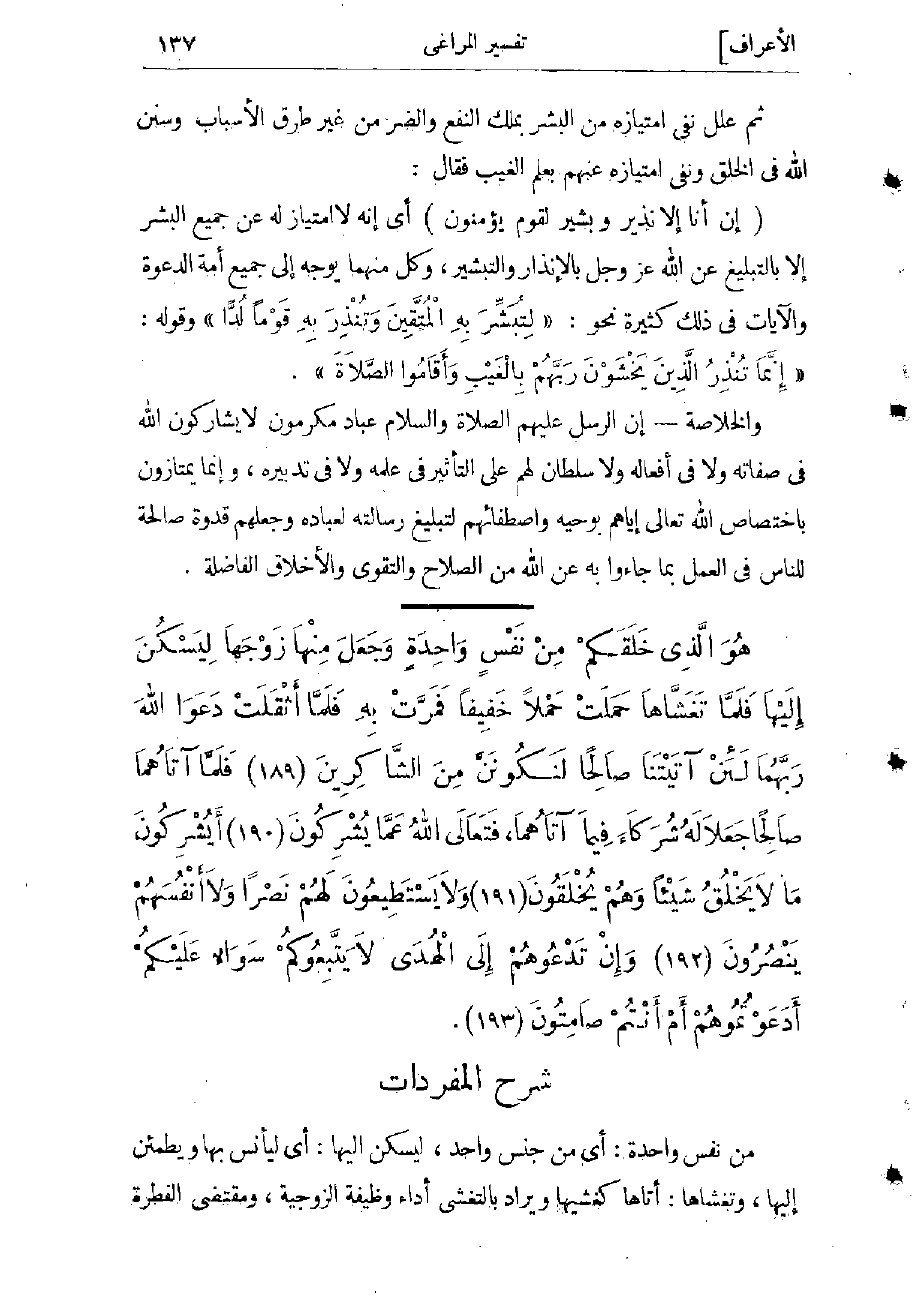 الأعراف] تفسير المراغى ١٣٧
ثم علل نفى امتيازه من البشر بملك النفع والضر من غير طرق الأسباب وسنن
الله فى الخلق ونفى امتيازه عنهم بعلم الغيب فقال :
( إن أنا إلا نذير وبشير لقوم يؤمنون ) أى إنه لا امتياز له عن جميع البشر
إلا بالتبليغ عن الله عز وجل بالإنذار والتبشير ، وكل منهما يوجه إلى جميع أمة الدعوة
والآيات فى ذلك كثيرة نحو : « لِتُبَشِّرَ بِهِ الْمُتَّقِينَ وَتُنْذِرَ بِهِ قَوْماً لُدًّا » وقوله :
« إِنَّمَا تُنْذِرُ الَّذِينَ يَخْشَوْنَ رَبَّهُمْ بِالْغَيْبِ وَأَقَامُوا الصَّلَاةَ » .
والخلاصة — إن الرسل عليهم الصلاة والسلام عباد مكرمون لا يشاركون الله
فى صفاته ولا فى أفعاله ولا سلطان لهم على التأثير فى علمه ولا فى تدبيره ، وإنما يمتازون
باختصاص الله تعالى إياهم بوحيه واصطفائهم لتبليغ رسالته لعباده وجعلهم قدوة صالحة
للناس فى العمل بما جاءوا به عن الله من الصلاح والتقوى والأخلاق الفاضلة .
هُوَ الَّذِى خَلَقَكُمْ مِنْ نَفْسٍ وَاحِدَةٍ وَجَعَلَ مِنْهَا زَوْجَهَا لِيَسْكُنَ
إِلَيْهَا فَلَمَّا تَغَشَّاهَا حَمَلَتْ حَمْلاً خَفِيفاً فَمَرَّتْ بِهِ فَلَمَّا أَثْقَلَتْ دَعَوَا اللهَ
رَبَّهُمَا لَئِنْ آتَيْتَنَا صَالِحًا لَنَكُونَنَّ مِنَ الشَّاكِرِينَ (١٨٩) فَلَمَّا آتَاهُمَا
صَالِحًا جَعَلَا لَهُ شُرَكَاءَ فِيمَا آتَاهُمَا، فَتَعَالَى اللهُ عَمَّا يُشْرِكُونَ (١٩٠) أَيُشْرِكُونَ
مَا لَا يَخْلُقُ شَيْئاً وَهُمْ يُخْلَقُونَ (١٩١) وَلَا يَسْتَطِيعُونَ لَهُمْ نَصْرًا وَلَا أَنْفُسَهُمْ
يَنْصُرُونَ (١٩٢) وَإِنْ تَدْعُوهُمْ إِلَى الْهُدَى لَا يَتَّبِعُوكُمْ سَوَاءٌ عَلَيْكُمْ
أَدَعَوْتُمُوهُمْ أَمْ أَنْتُمْ صَامِتُونَ (١٩٣).
شرح المفردات
من نفس واحدة : أى من جنس واحد ، ليسكن اليها : أى ليأنس بها ويطمئن
إليها ، وتغشاها : أتاها كغشيها ويراد بالتغشى أداء وظيفة الزوجية ، ومقتضى الفطرة